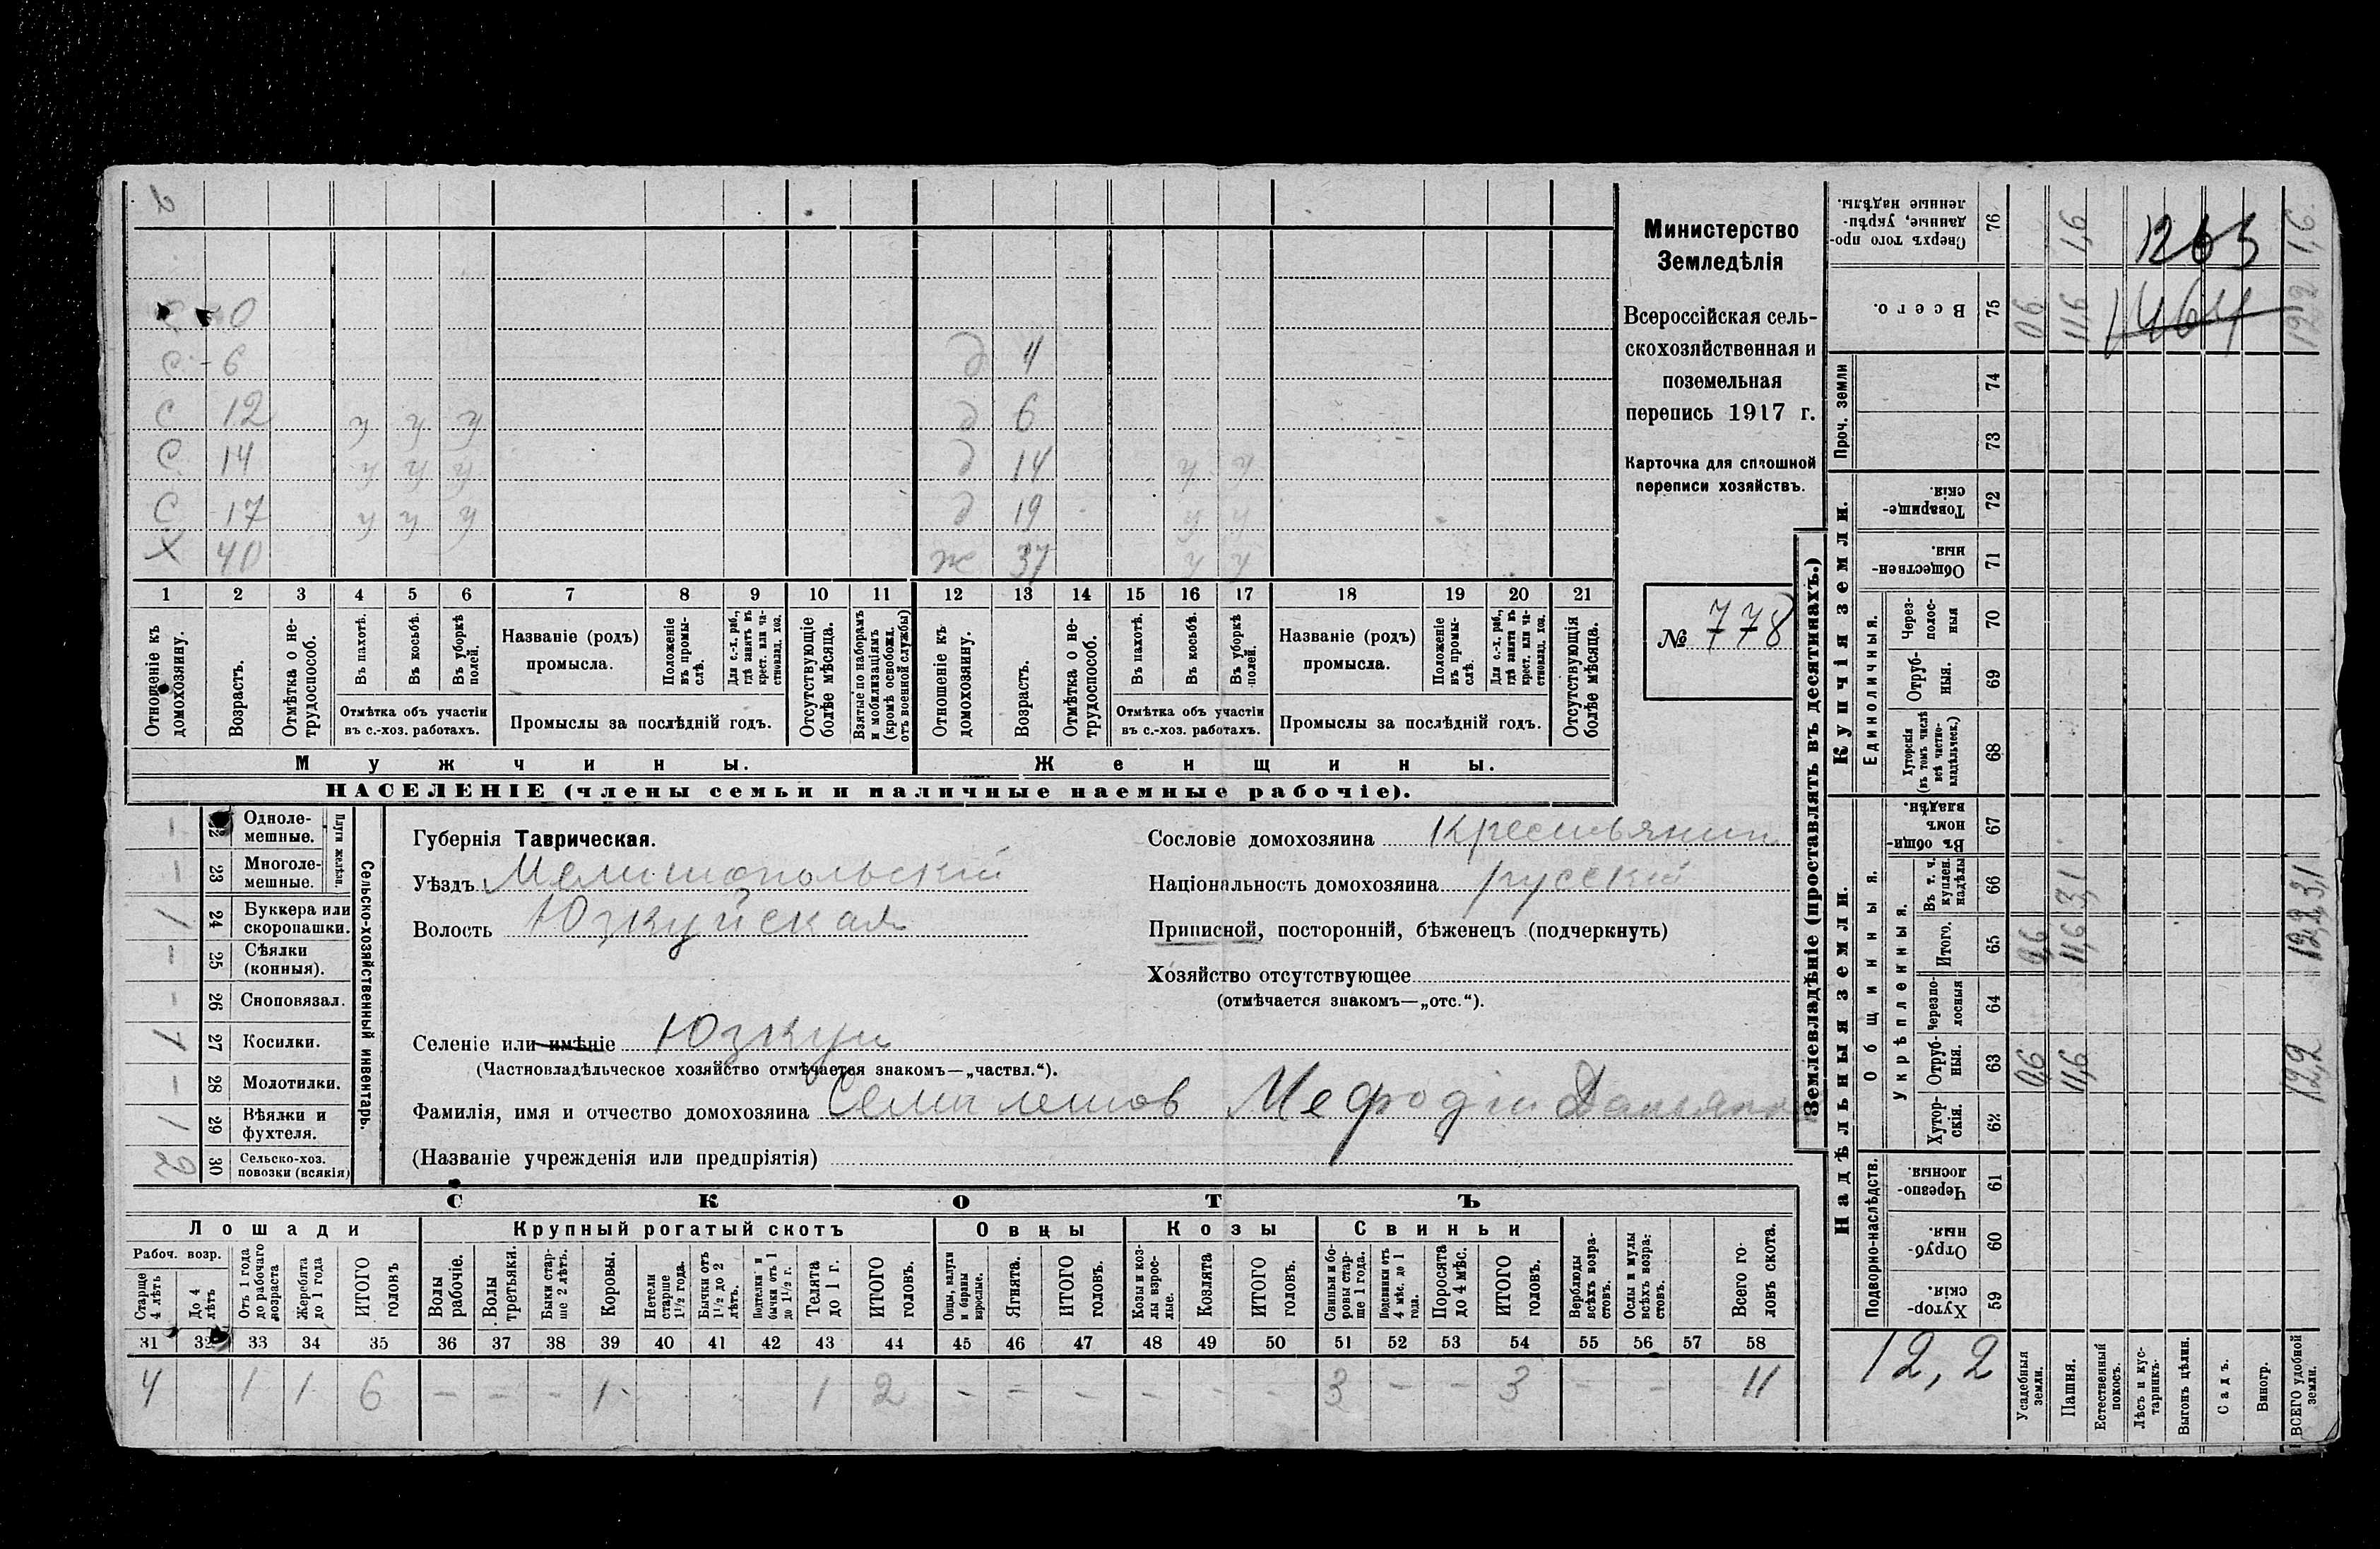 2
С 0
С - 6
С 12 у у у
С 14 у у у
С 17 у у у
Х 40
д 4
д 6
д 14 у у
д 19 у у
ж 37 у у
1 2 3 4 5 6 7 8 9 10 11 12 13 14 15 16 17 18 19 20 21
Отношеніе къ домохозяину.
Возрастъ.
Отмѣтка о не-
трудоспособ.
Въ пахотѣ.
Въ косьбѣ.
Въ уборкѣ
полей.
Отмѣтка объ участіи
въ с.-хоз. работахъ.
Названіе (родъ)
промысла.
Положеніе
въ промы-
слѣ.
Для с.-х. раб.,
гдѣ занятъ въ
крест. или ча-
стновлад. хоз.
Промыслы за послѣдній годъ.
Отсутствующіе
болѣе мѣсяца.
Взятые по наборамъ
и мобилизаціямъ
(кромѣ освобожд.
отъ военной службы)
Отношеніе къ
домохозяину.
Возрастъ.
Отмѣтка о не-
трудоспособ.
Въ пахотѣ.
Въ косьбѣ.
Въ уборкѣ
полей.
Отмѣтка объ участіи
въ с.-хоз. работахъ.
Названіе (родъ)
промысла.
Положеніе
въ промы-
слѣ.
Для с.-х. раб.,
гдѣ занята въ
крест. или ча-
стновлад. хоз.
Промыслы за послѣдній годъ.
Отсутствующія
болѣе мѣсяца.
Мужчины.
Женщины.
НАСЕЛЕНІЕ (члены семьи и наличные наемные рабочіе).
Министерство
Земледѣлія
Всероссійская сель-
скохозяйственная и
поземельная
перепись 1917 г.
Карточка для сплошной
переписи хозяйствъ.
№ 778
Сельско-хозяйственный инвентарь.
Плуги желѣзн.
– 22 Одноле-
мешные.
– 23 Многоле-
мешные.
1 24 Буккера или
скоропашки.
– 25 Сѣялки
(конныя).
– 26 Сноповязал.
1 27 Косилки.
– 28 Молотилки.
1 29 Вѣялки и
фухтеля.
2 30 Сельско-хоз.
повозки (всякія)
Губернія Таврическая.
Уѣздъ Мелитопольскій
Волость Юзкуйская
Сословіе домохозяина Крестьянин
Національность домохозяина русскій
Приписной, посторонній, бѣженецъ (подчеркнуть)
Хозяйство отсутствующее
(отмѣчается знакомъ—„отс.“).
Селеніе или имѣніе Юзкуи
(Частновладѣльческое хозяйство отмѣчается знакомъ—„частвл.“).
Фамилія, имя и отчество домохозяина Семилетов Мефодій
(Названіе учрежденія или предпріятія)
СКОТЪ
Лошади
Крупный рогатый скотъ
Овцы
Козы
Свиньи
Рабоч. возр.
Старше
4 лѣтъ
До 4
лѣтъ
Отъ 1 года
до рабочаго
возраста
Жеребята
до 1 года
ИТОГО
головъ
Волы
рабочіе.
Волы
третьяки.
Быки стар-
ше 2 лѣтъ.
Коровы.
Нетели
старше
1½ года.
Бычки отъ
1½ до 2
лѣтъ.
Подтелки и
бычки отъ 1
до 1½ г.
Телята
до 1 г.
ИТОГО
головъ.
Овцы, валухи
и бараны
взрослые.
Ягнята.
ИТОГО
головъ.
Козы и коз-
лы взрос-
лые.
Козлята
ИТОГО
головъ.
Свиньи и бо-
ровы стар-
ше 1 года.
Подсвинки отъ
4 мѣс. до 1
года.
Поросята
до 4 мѣс.
ИТОГО
головъ.
Верблюды
всѣхъ возра-
стовъ.
Ослы и мулы
всѣхъ возра-
стовъ.
Всего го-
ловъ скота.
31 32 33 34 35 36 37 38 39 40 41 42 43 44 45 46 47 48 49 50 51 52 53 54 55 56 57 58
4 1 1 6 – – – 1 - 1 2 – – – – – – 3 – – 3 – – 11
Землевладѣніе (проставлять въ десятинахъ.)
Купчія земли.
Надѣльныя земли.
Проч. земли
Единоличныя.
Общинныя.
Укрѣпленныя.
Подворно-наслѣдств.
Сверхъ того про-
данные, укрѣп-
ленные надѣлы. 76 1,6 1,6
1263
Всего. 75 0,6 11,6 12,2
1464
74
73
Товарище-
скія. 72
Обществен-
ныя. 71
Через-
полос-
ныя 70
Отруб-
ныя. 69
Хуторскія
(въ томъ числѣ
всѣ частно-
владѣльческ.) 68
Въ общин-
номъ
владѣн. 67
Въ т. ч.
куплен.
надѣлы 66 3,1 3,1
Итого. 65 0,6 11,6 12,2
Черезпо-
лосныя 64
Отруб-
ныя. 63 0,6 11,6 12,2
Хутор-
скія. 62
Черезпо-
лосныя. 61
Отруб-
ныя. 60
Хутор-
скія. 59
12,2
Усадебныя
земли.
Пашня.
Естественный
покосъ.
Лѣсъ и кус-
тарникъ.
Выгонъ цѣлин.
Садъ.
Виногр.
ВСЕГО удобной
земли.